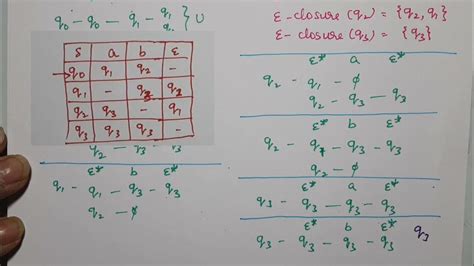 q0 - q0 - q1 - q1
q2 } U
δ a b ε
→q0 q1 q2 -
q1 - q3 q2
q2 q3 - q1
q3 q3 q3 -
q2 - q3 - q3
ε* b ε*
q1 - q1 - q3 - q3
q2 - ϕ
ε-closure(q2) = {q2, q1}
ε-closure(q3) = {q3}
ε* a ε*
q2 - q1 - ϕ
q2 - q3 - q3
ε* b ε*
q2 - q1 - q3 - q3
q2 - ϕ
ε* a ε*
q3 - q3 - q3 - q3
ε* b ε*
q3 - q3 - q3 - q3 q3